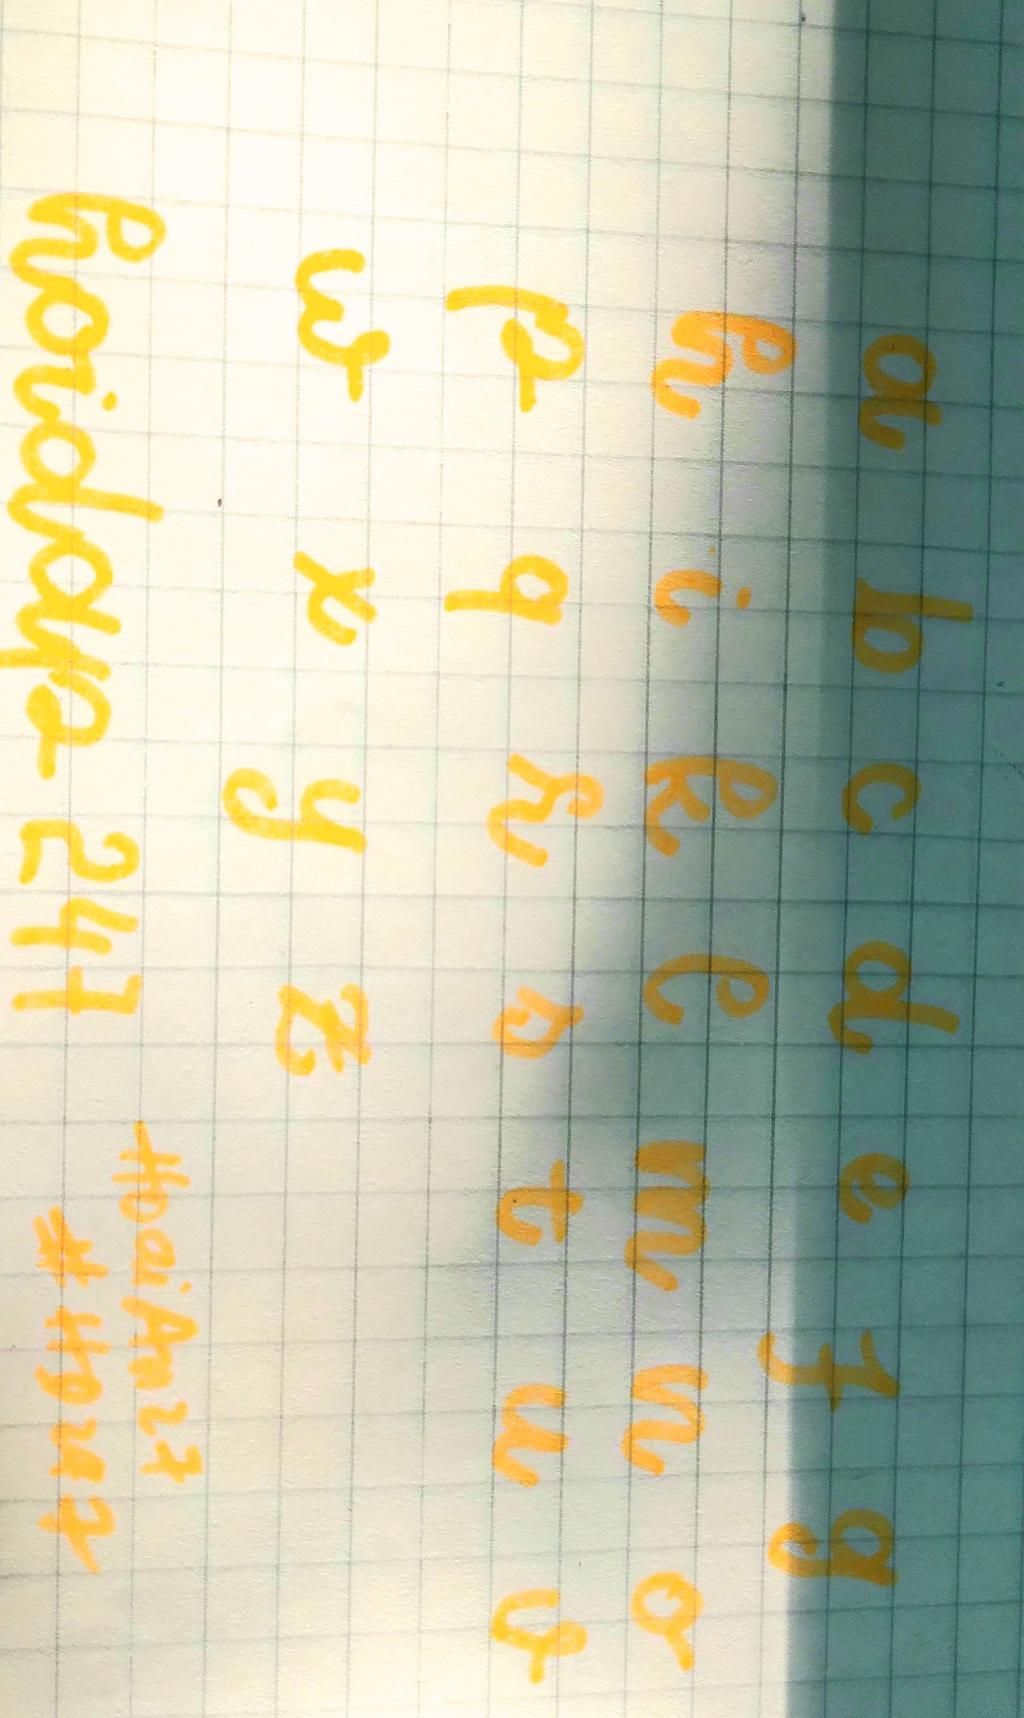 a b c d e f g
h i k l m n o
p q r s t u v
w x y z
hoidap 247
HoaiAn27